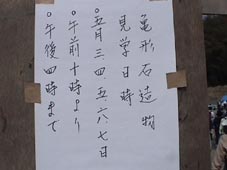 亀形石造物
見学日時
○五月三、四、五、六、七日
○午前十時より
○午後四時まで